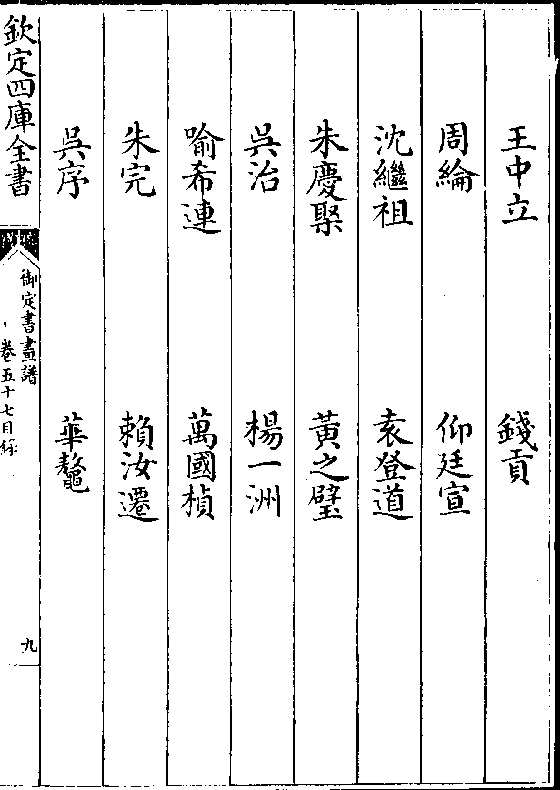 王中立　錢貢
周綸　仰廷宣
沈繼祖　袁登道
朱慶聚　黃之璧
吳治　楊一洲
喻希連　萬國楨
朱完　賴汝遷
吳序　華鼇
欽定四庫全書
御定書畫譜
卷五十七目錄
九